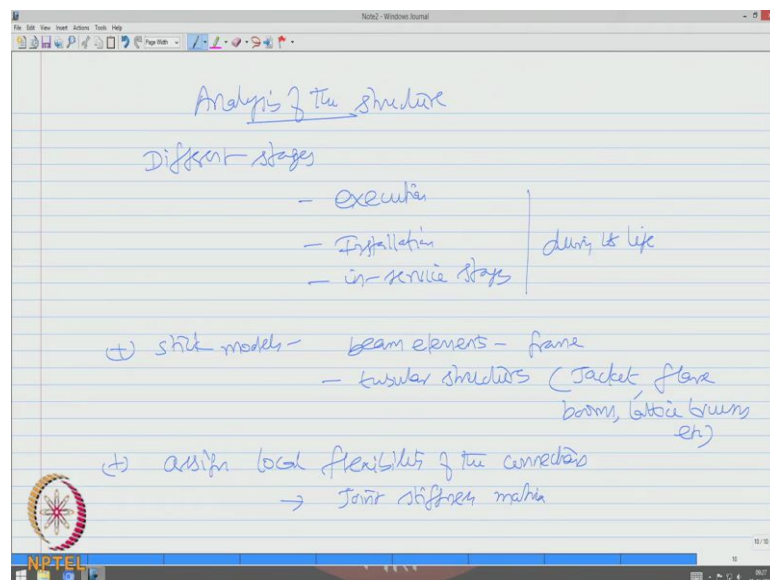 Note2 - Windows Journal
File Edit View Insert Actions Tools Help
Page Width
Analysis of the structure
Different stages
- execution
- Installation
- in-service stages
during its life
(+) stick models - beam elements - frame
- tubular structures (Jacket, flare
booms, lattice trusses
etc)
(+) assign local flexibility of the connections
→ Joint stiffness matrix
NPTEL
10/10
10
09:27